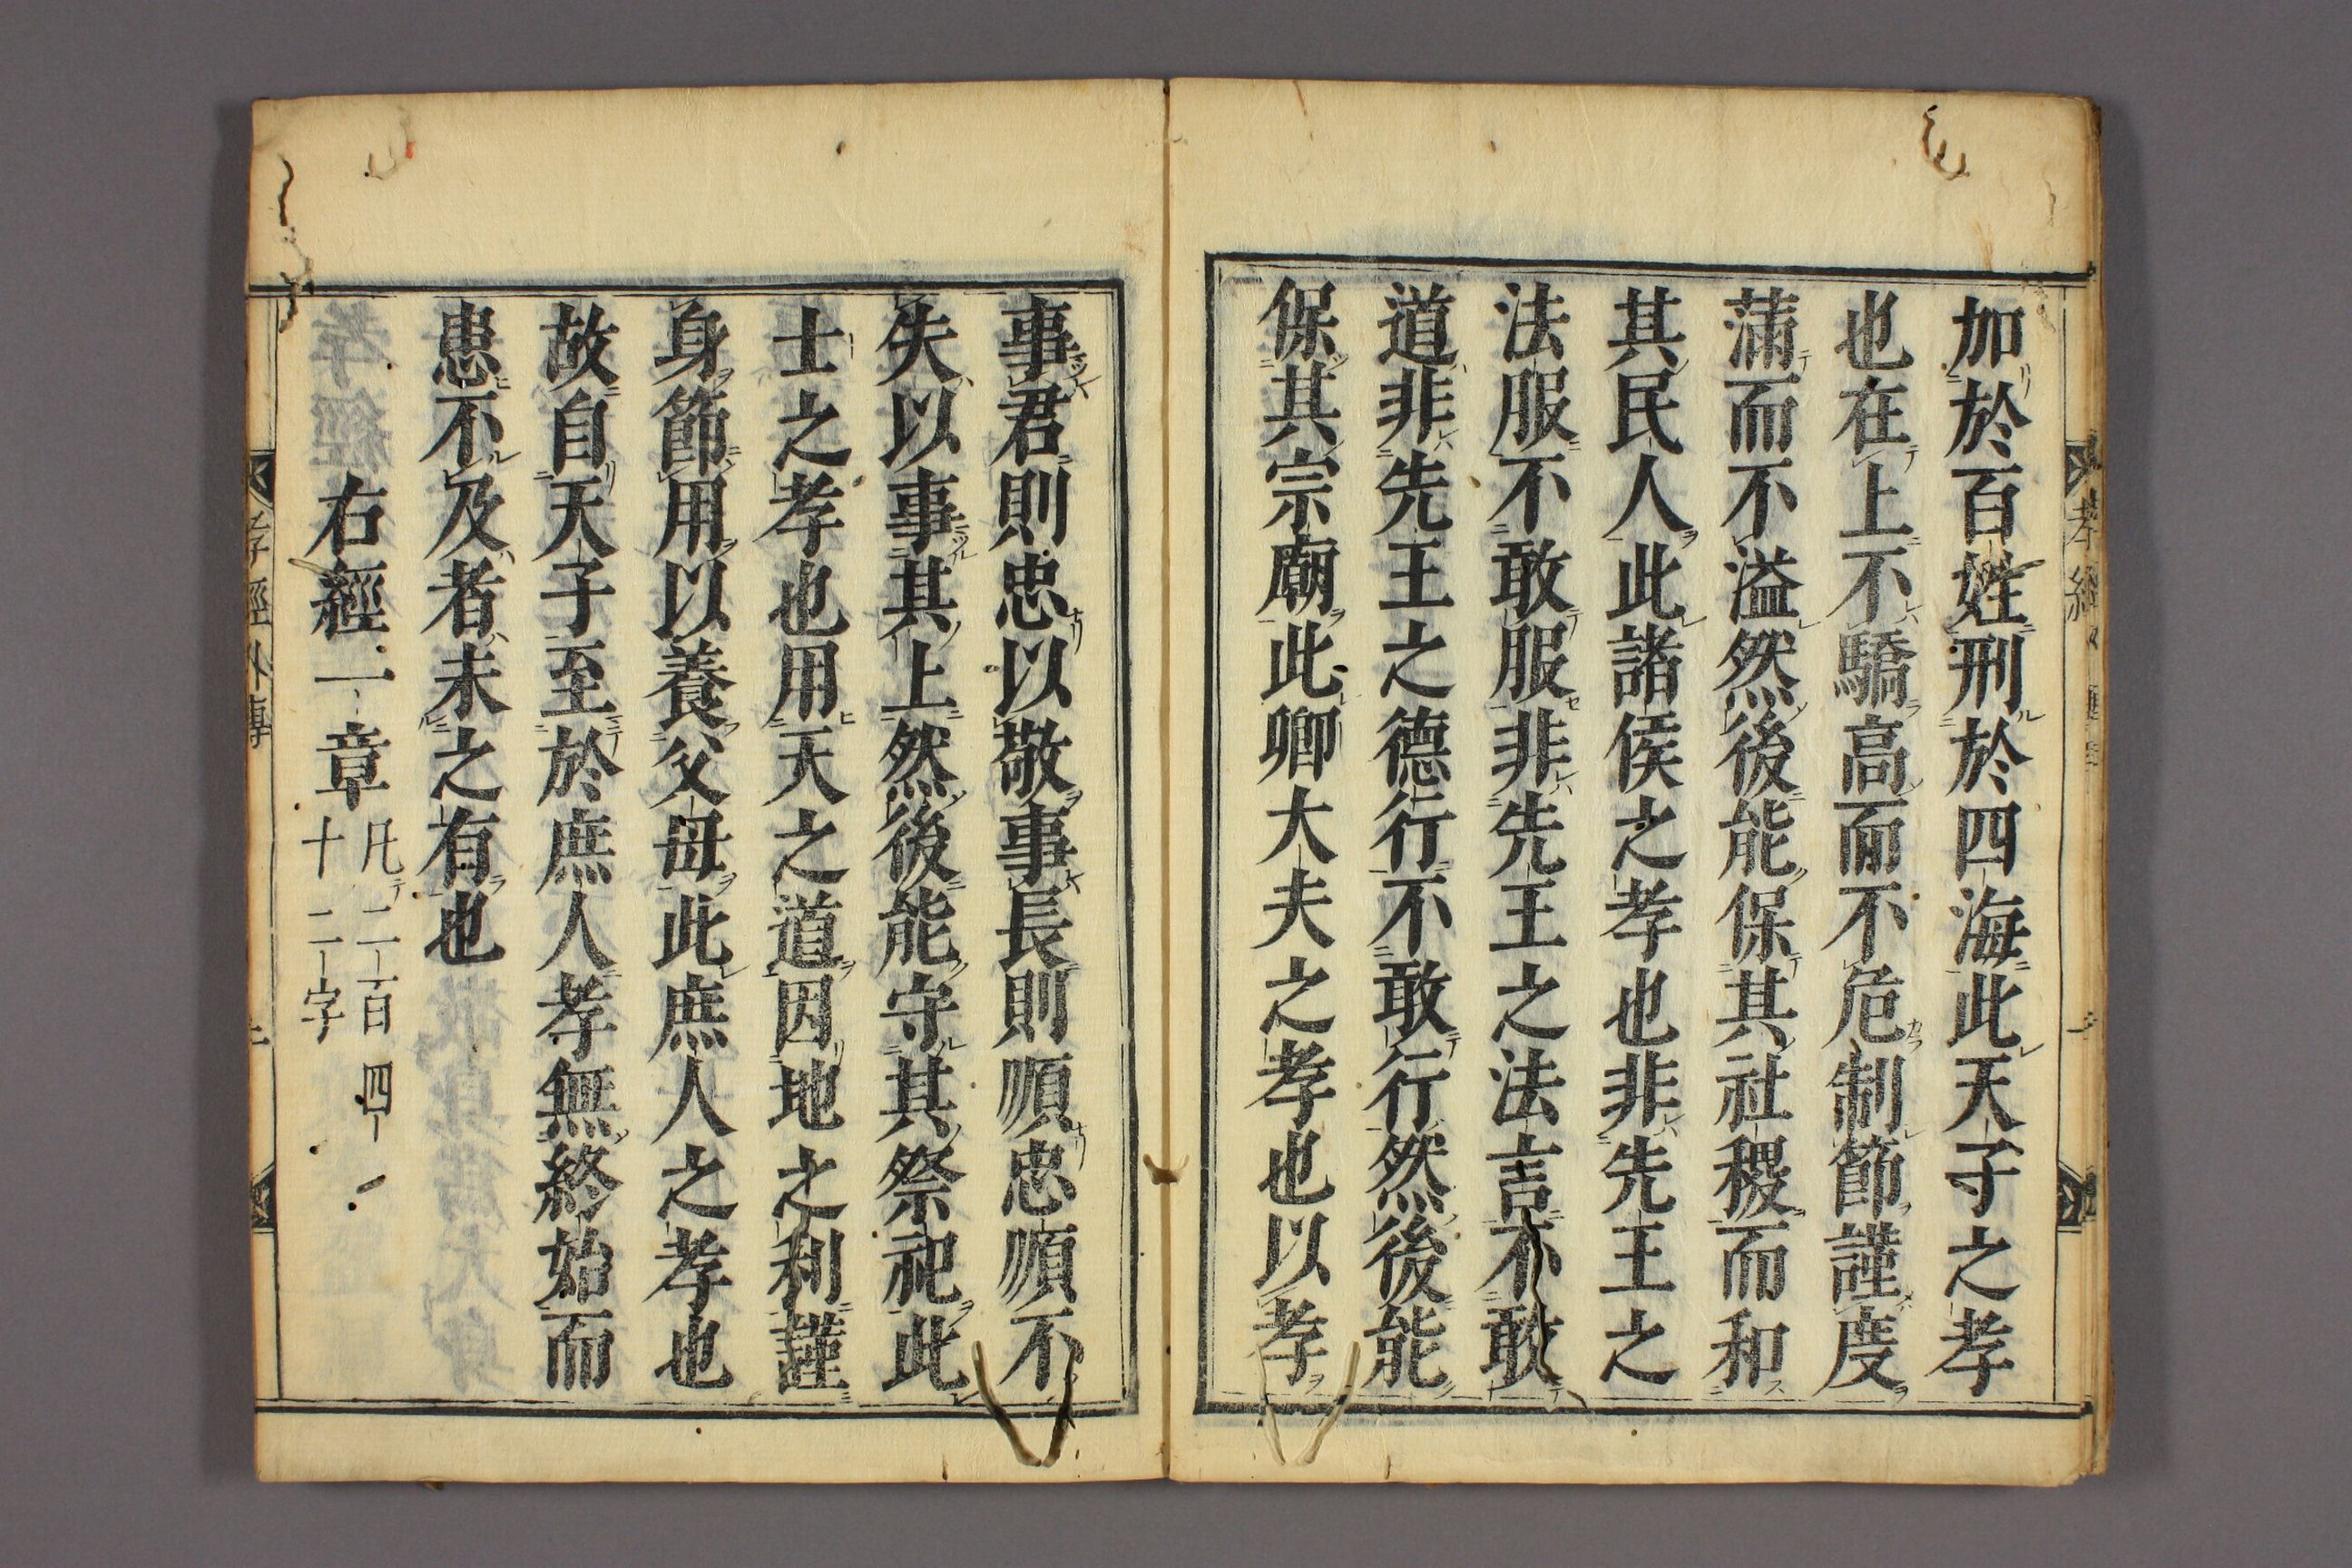 加於百姓刑於四海此天子之孝
也在上不驕高而不危制節謹度
滿而不溢然後能保其社稷而和
其民人此諸侯之孝也非先王之
法服不敢服非先王之法言不敢
道非先王之德行不敢行然後能
保其宗廟此卿大夫之孝也以孝
事君則忠以敬事長則順忠順不
失以事其上然後能守其祭祀此
士之孝也用天之道因地之利謹
身節用以養父母此庶人之孝也
故自天子至於庶人孝無終始而
患不及者未之有也
右經一章
凡二百四
十二字
孝經外傳